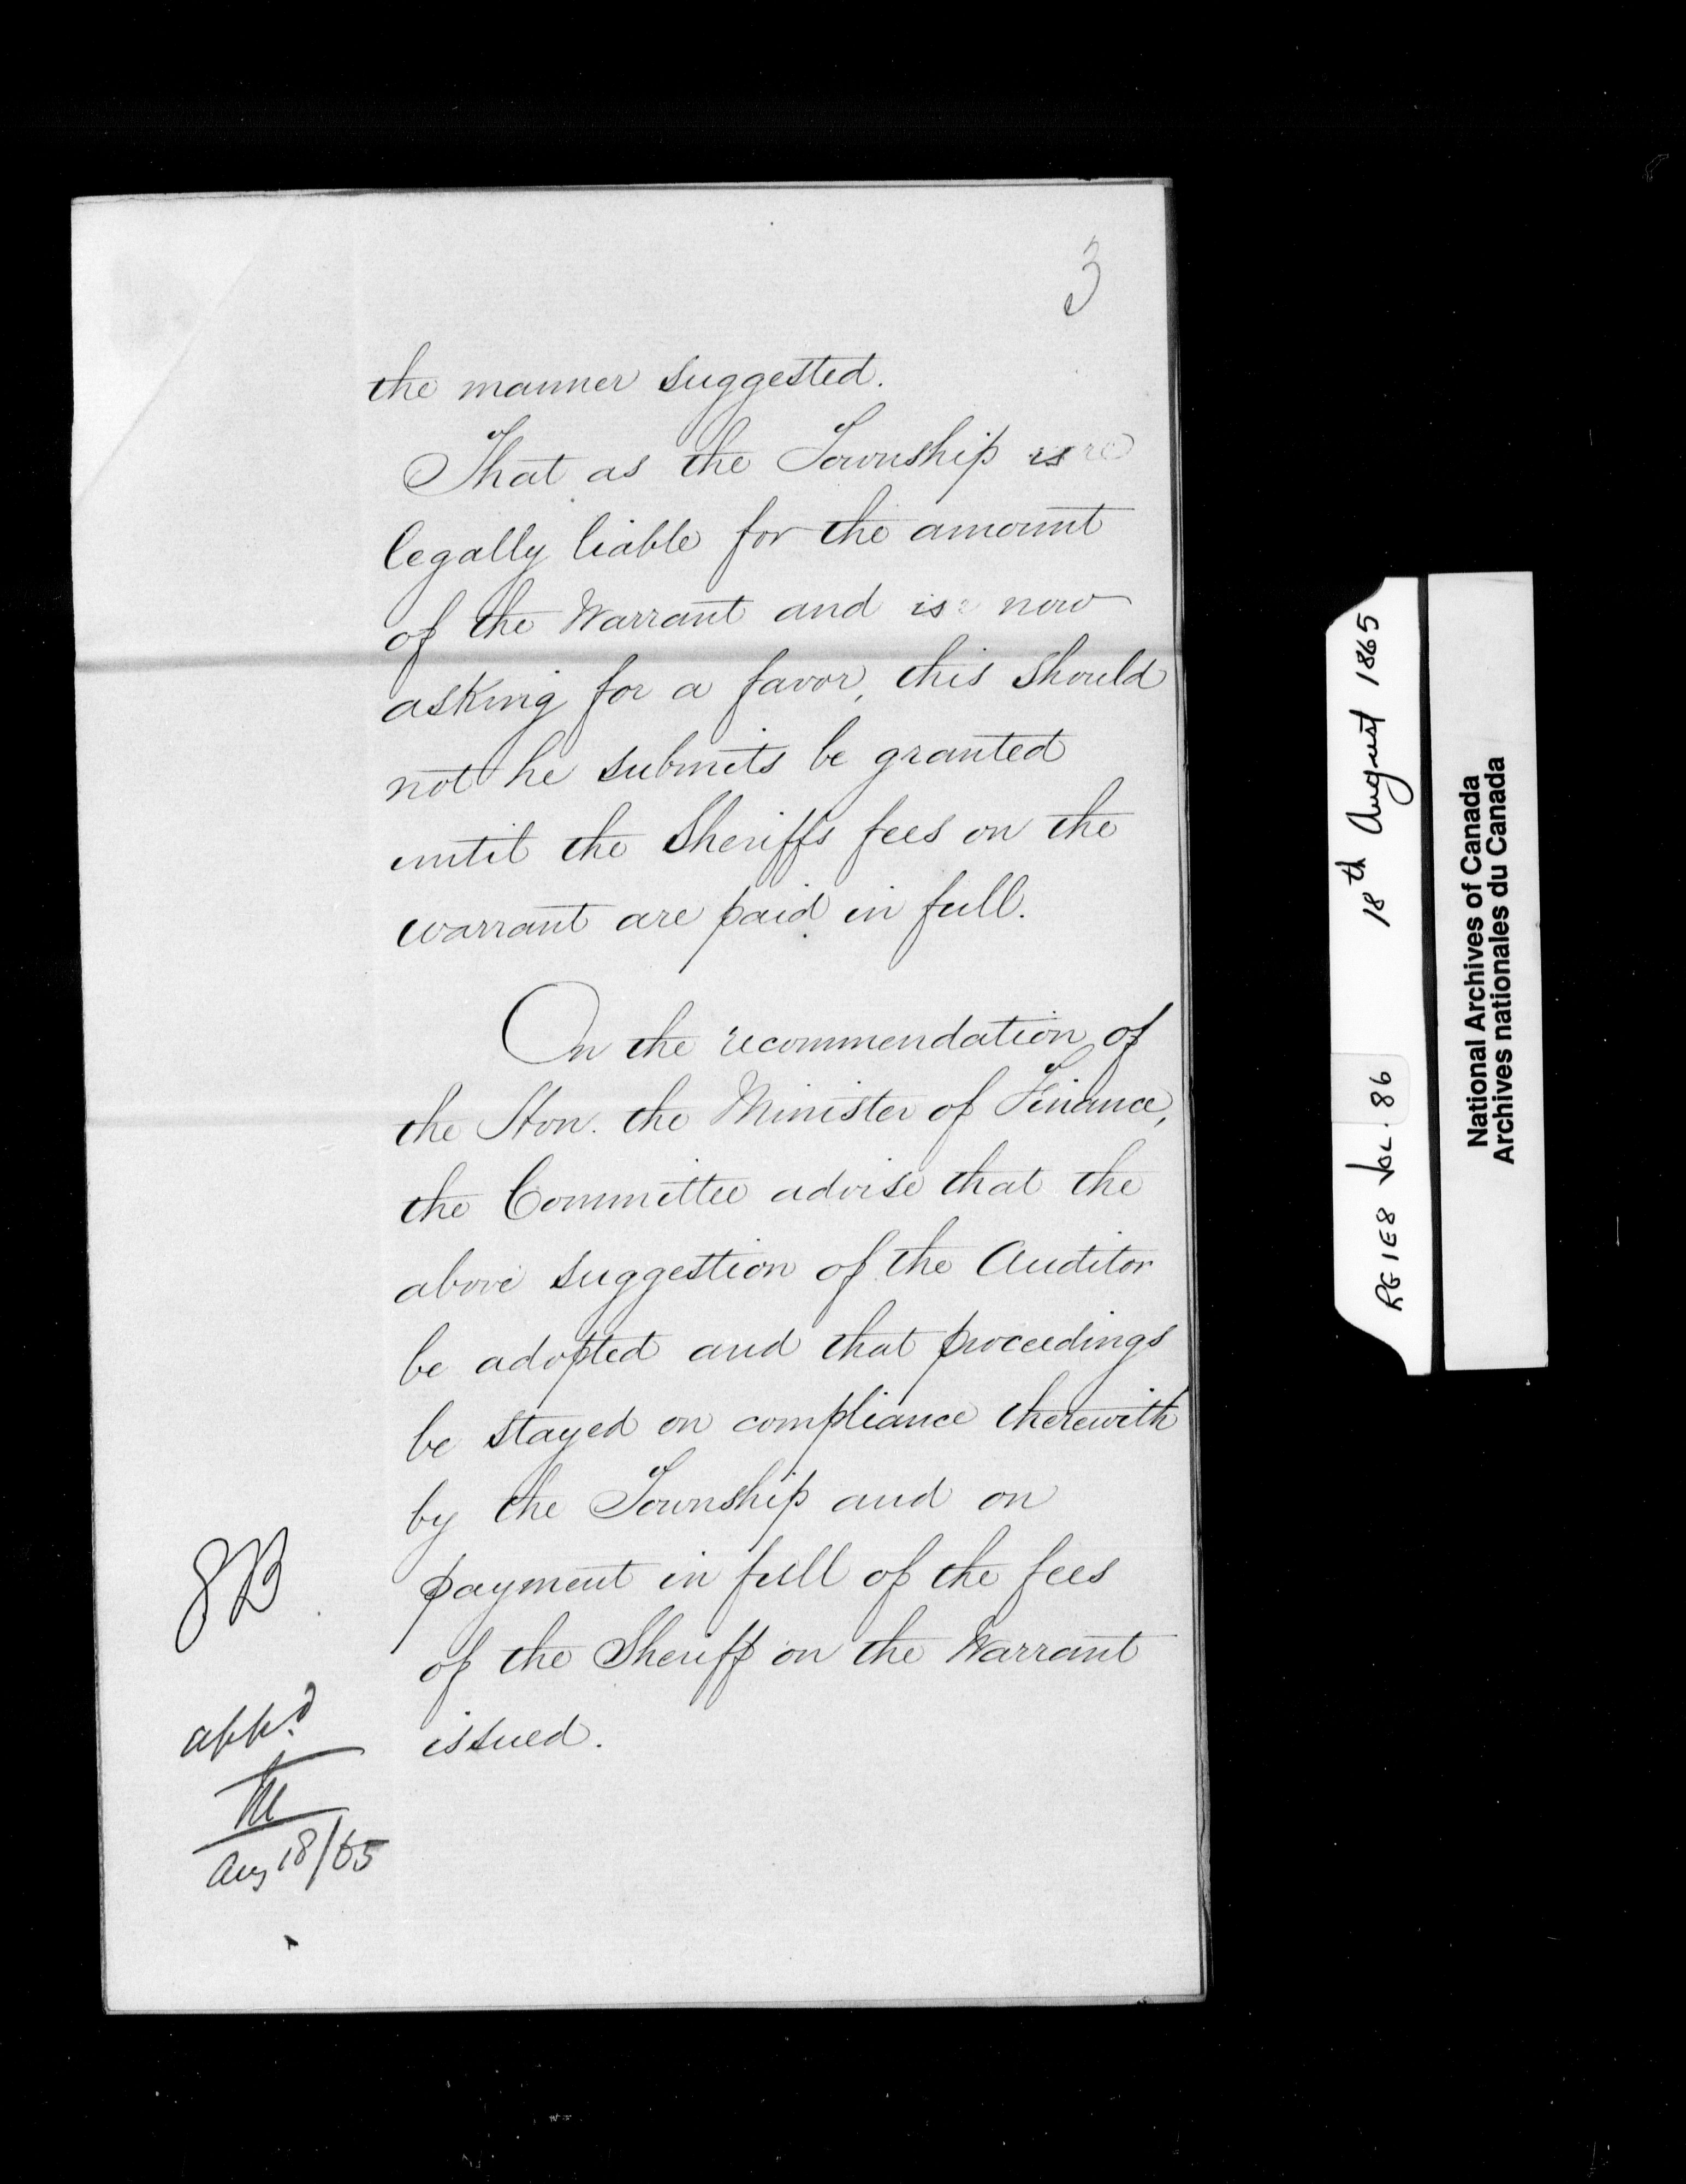 3
the manner suggested.
That as the Township is
legally liable for the amount
of the Warrant and is now
asking for a favor, this should
not he submits be granted
until the Sheriffs fees on the
warrant are paid in full.
On the recommendation of
the Hon. the Minister of Finance,
the Committee advise that the
above suggestion of the Auditor
be adopted and that proceedings
be stayed on compliance therewith
by the Township and on
payment in full of the fees
of the Sheriff on the Warrant
issued.
appd
Aug 18/65
RG1E8 VOL. 86 18th August 1865
National Archives of Canada
Archives nationales du Canada